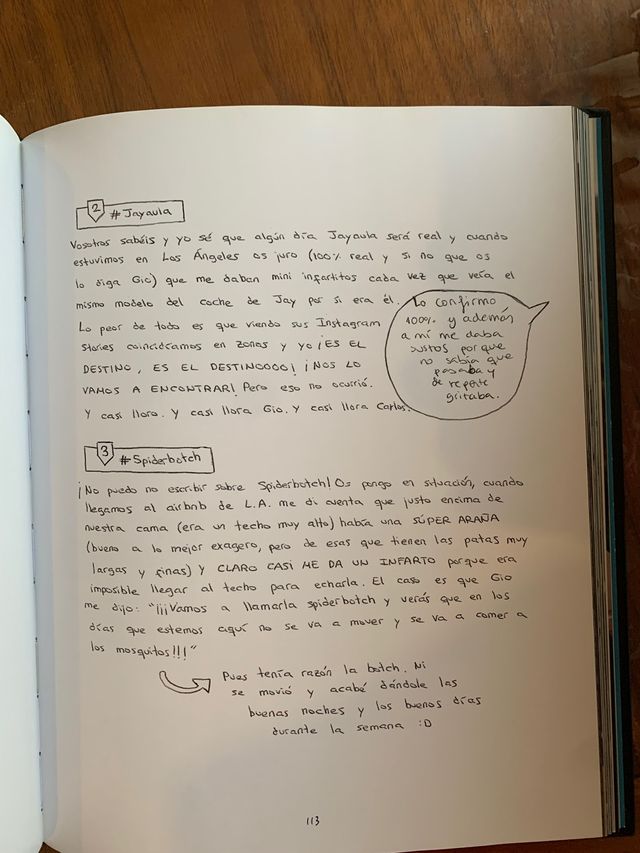 2 #Jayaula
Vosotros sabéis y yo sé que algún día Jayaula será real y cuando
estuvimos en Los Ángeles os juro (100% real y si no que os
lo diga Gio) que me daban mini infartitos cada vez que veía el
mismo modelo del coche de Jay por si era él.
Lo peor de todo es que viendo sus Instagram
Stories coincidíamos en zonas y yo ¡ES EL
DESTINO, ES EL DESTINOOOO! ¡NOS LO
VAMOS A ENCONTRAR! Pero eso no ocurrió.
Y casi lloro. Y casi llora Gio. Y casi llora Carlos.
Lo confirmo
100% y además
a mí me daba
sustos porque
no sabía que
pasaba y
de repente
gritaba.
3 #Spiderbotch
¡No puedo no escribir sobre Spiderbotch! Os pongo en situación, cuando
llegamos al airbnb de L.A. me di cuenta que justo encima de
nuestra cama (era un techo muy alto) había una SÚPER ARAÑA
(bueno a lo mejor exagero, pero de esas que tienen las patas muy
largas y finas) y CLARO CASI ME DA UN INFARTO porque era
imposible llegar al techo para echarla. El caso es que Gio
me dijo: "¡¡¡Vamos a llamarla spiderbotch y verás que en los
días que estemos aquí no se va a mover y se va a comer a
los mosquitos!!!"
Pues tenía razón la botch. Ni
se movió y acabé dándole las
buenas noches y los buenos días
durante la semana :D
113